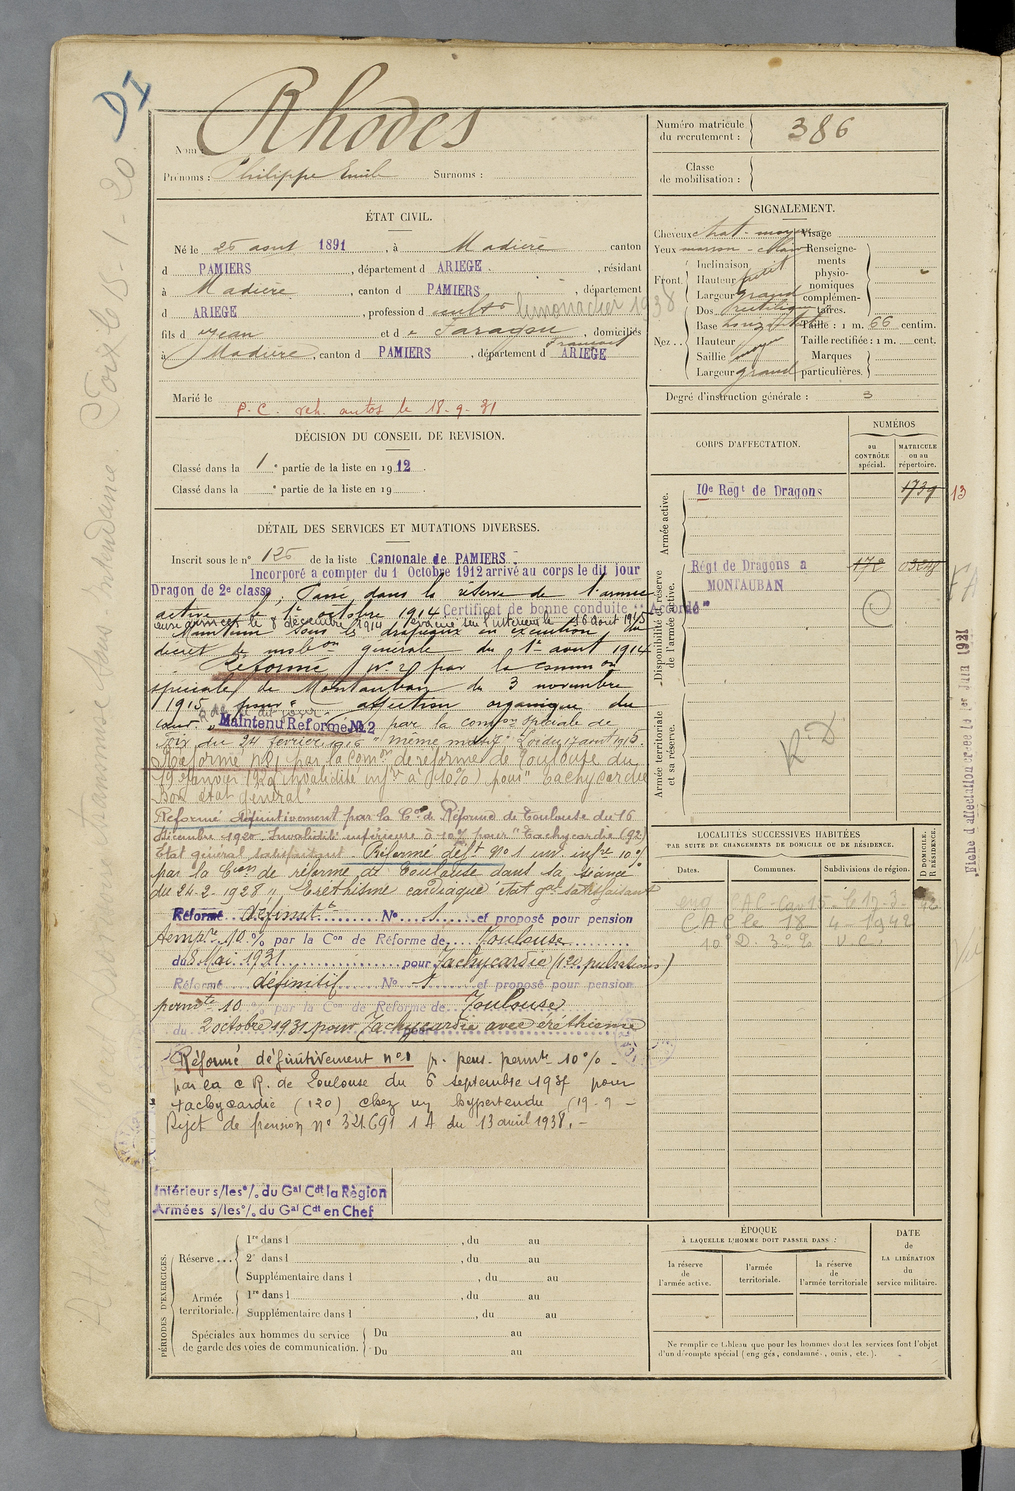 DI
Nom : Rhodes
Prénoms : Philippe Emile Surnoms :
Numéro matricule du recrutement : 386
Classe de mobilisation :
ÉTAT CIVIL.
Né le 26 aout 1891, à Madière canton
d PAMIERS, département d ARIEGE., résidant
à Madière, canton d PAMIERS, département
d ARIEGE, profession d cultr limonadier 1938
fils d Jean et d e Faragou, domiciliés
à Madière, canton d PAMIERS, département d ARIEGE
Marié le
P.C. veh. autos le 18-9-31
DÉCISION DU CONSEIL DE REVISION.
Classé dans la 1e partie de la liste en 1912.
Classé dans la e partie de la liste en 19
DÉTAIL DES SERVICES ET MUTATIONS DIVERSES.
Inscrit sous le n° 126 de la liste Cantonale de PAMIERS.
Incorporé a compter du 1 Octobre 1912 arrivé au corps le dit jour
Dragon de 2e classe; Passé dans la réserve de l'armée
active le 1er octobre 1914 Certificat de bonne conduite "Accordé"
aux armées le 8 décembre 1914 évacué sur l'intérieur le 16 aout 1915
Maintenu sous les drapeaux en exécution du
décret de mobon générale du 1er aout 1914
Réformé n° 2 par la common
spéciale de Montauban du 3 novembre
1915 pour " affection organique du
cœur " Maintenu Réformé No 2 par la comon spéciale de
Foix du 24 février 1916 "même motif" Loi du 17 aout 1915.
Réformé n° 1 par la Comon de réforme de Toulouse du
19 janvier 1920 invalidité infre à 10%) pour "Tachycardie
Bon état général"
Réformé définitivement par la Con de Réforme de Toulouse du 16
décembre 1920. Invalidité inférieure à 10% pour "Tachycardie (92)
Etat général satisfaisant. Réformé déft n° 1 inv. infre 10%
par la Con de réforme de Toulouse dans sa séance
du 24-2-1928 " Erethisme cardiaque état gal satisfaisant
Réformé définitf No 1 et proposé pour pension
tempre 10 % par la Con de Réforme de Toulouse
du 8 Mai 1931 pour Tachycardie (120 pulsations)
Réformé définitif No 1 et proposé pour pension
permte 10 % par la Con de Réforme de Toulouse
du 2 octobre 1931 pour Tachycardie avec eréthisme
Réformé définitivement n° 1 p. pens. permte 10% -
par la C R. de Toulouse du 6 septembre 1937 pour
tachycardie (120) chez un hypertendu (19-9 -
Rejet de pension n° 321.691 1 A du 13 avril 1938. -
Intérieur s/les °/. du Gal Cdt la Région
Armées s/les °/. du Gal Cdt en Chef
PÉRIODES D'EXERCICES.
Réserve
1re dans l , du au
2e dans l , du au
Supplémentaire dans l , du au
Armée territoriale.
1re dans l , du au
Supplémentaire dans l , du au
Spéciales aux hommes du service de garde des voies de communication.
Du au
Du au
SIGNALEMENT.
Cheveux chat - moyen Visage
Yeux marron - clair Renseignements physionomiques complémentaires.
Front
Inclinaison
Hauteur petit
Largeur grand
Nez
Dos rectiligne
Base horizontale
Hauteur
Saillie moyen
Largeur grand
Taille : 1 m. 66 centim.
Taille rectifiée : 1 m. cent.
Marques particulières.
Degré d'instruction générale : 3
CORPS D'AFFECTATION.
NUMÉROS
au CONTRÔLE spécial.
MATRICULE ou au répertoire.
Armée active.
10e Regt de Dragons 1739 13
Disponibilité et réserve de l'armée active.
Régt de Dragons a 172
MONTAUBAN
C
Armée territoriale et sa réserve.
R D
LOCALITÉS SUCCESSIVES HABITÉES
PAR SUITE DE CHANGEMENTS DE DOMICILE OU DE RÉSIDENCE.
Dates. Communes. Subdivisions de région. D DOMICILE. R RÉSIDENCE.
C A C le 18 - 4 - 1942
ÉPOQUE
À LAQUELLE L'HOMME DOIT PASSER DANS :
la réserve de l'armée active.
l'armée territoriale.
la réserve de l'armée territoriale
DATE de LA LIBÉRATION du service militaire.
Ne remplir ce tableau que pour les hommes dont les services font l'objet
d'un décompte spécial (engagés, condamnés, omis, etc.).
Fiche d'affectation créée le 1er Juin 1921